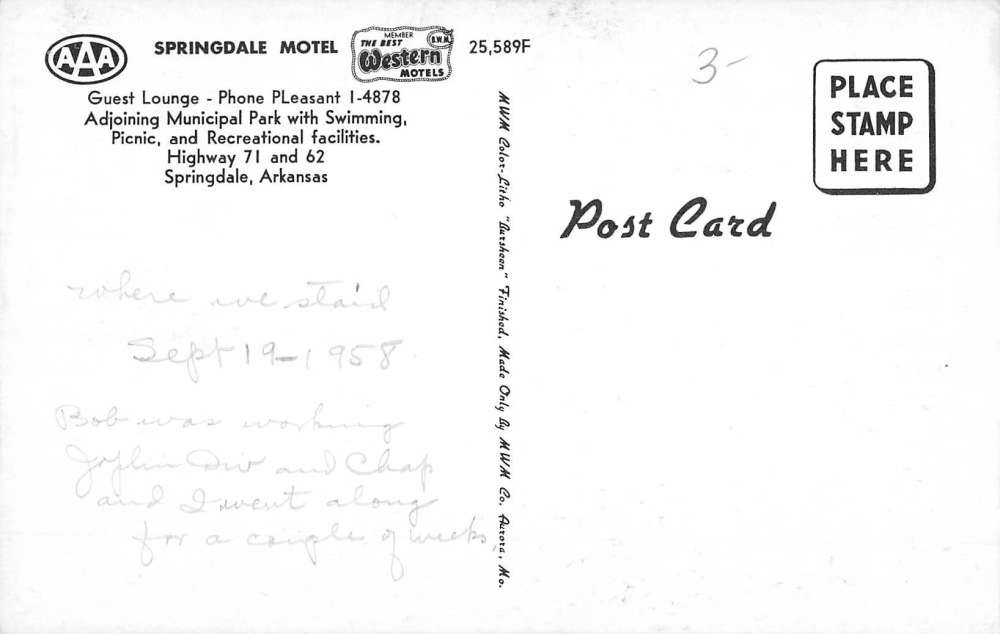 AAA
SPRINGDALE MOTEL
MEMBER
THE BEST B.W.M.
Western
MOTELS
25,589F
Guest Lounge - Phone PLeasant 1-4878
Adjoining Municipal Park with Swimming,
Picnic, and Recreational facilities.
Highway 71 and 62
Springdale, Arkansas
where we staid
Sept 19-1958
Bob was working
Joplin Div and Chap
and I went along
for a couple of weeks.
MWM Color-Litho "Bursheen" Finished, Made Only By MWM Co. Aurora, Mo.
3-
PLACE
STAMP
HERE
Post Card